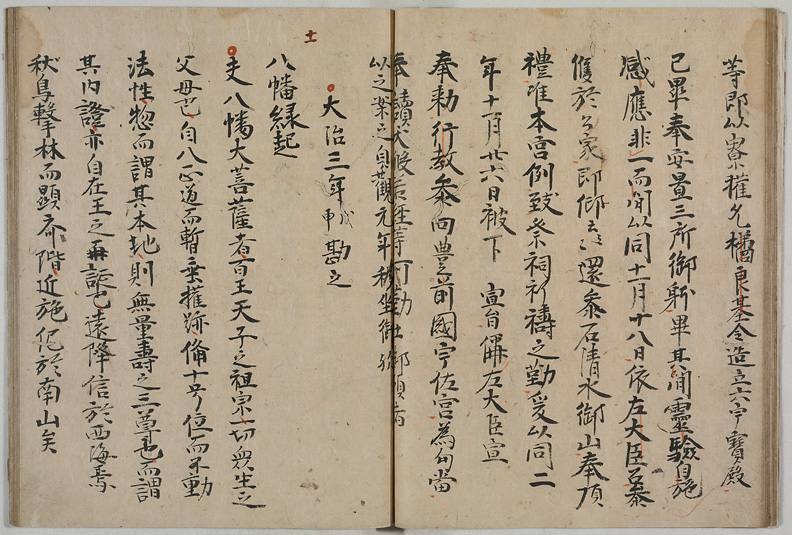 等即以寮権允橘良基令造立六宇寶殿
已畢奉安置三所御躰畢其間靈驗自施
感應非一而間以同十一月十八日依左大臣召参
於公家即仰云還参石清水御山奉頂
禮准本宮例致祭祠祈禱之勤爰以同二
年十一月廿六日被下 宣旨偁左大臣宣
奉勅行教参向豊前國宇佐宮為勾當
奉讀大般若經等
以之案之貞觀元年移坐御
大治三年戊申勘之
十一
八幡縁起
夫八幡大菩薩者百王天子之祖宗一切衆生之
父母也自八正道而暫垂權跡備十号位而不動
法性惣而謂其本地則無量壽之三尊也而謂
其内證亦自在王之再誕也遠降信於西海
秋鳥擊林而顯 階近施化於南山矣